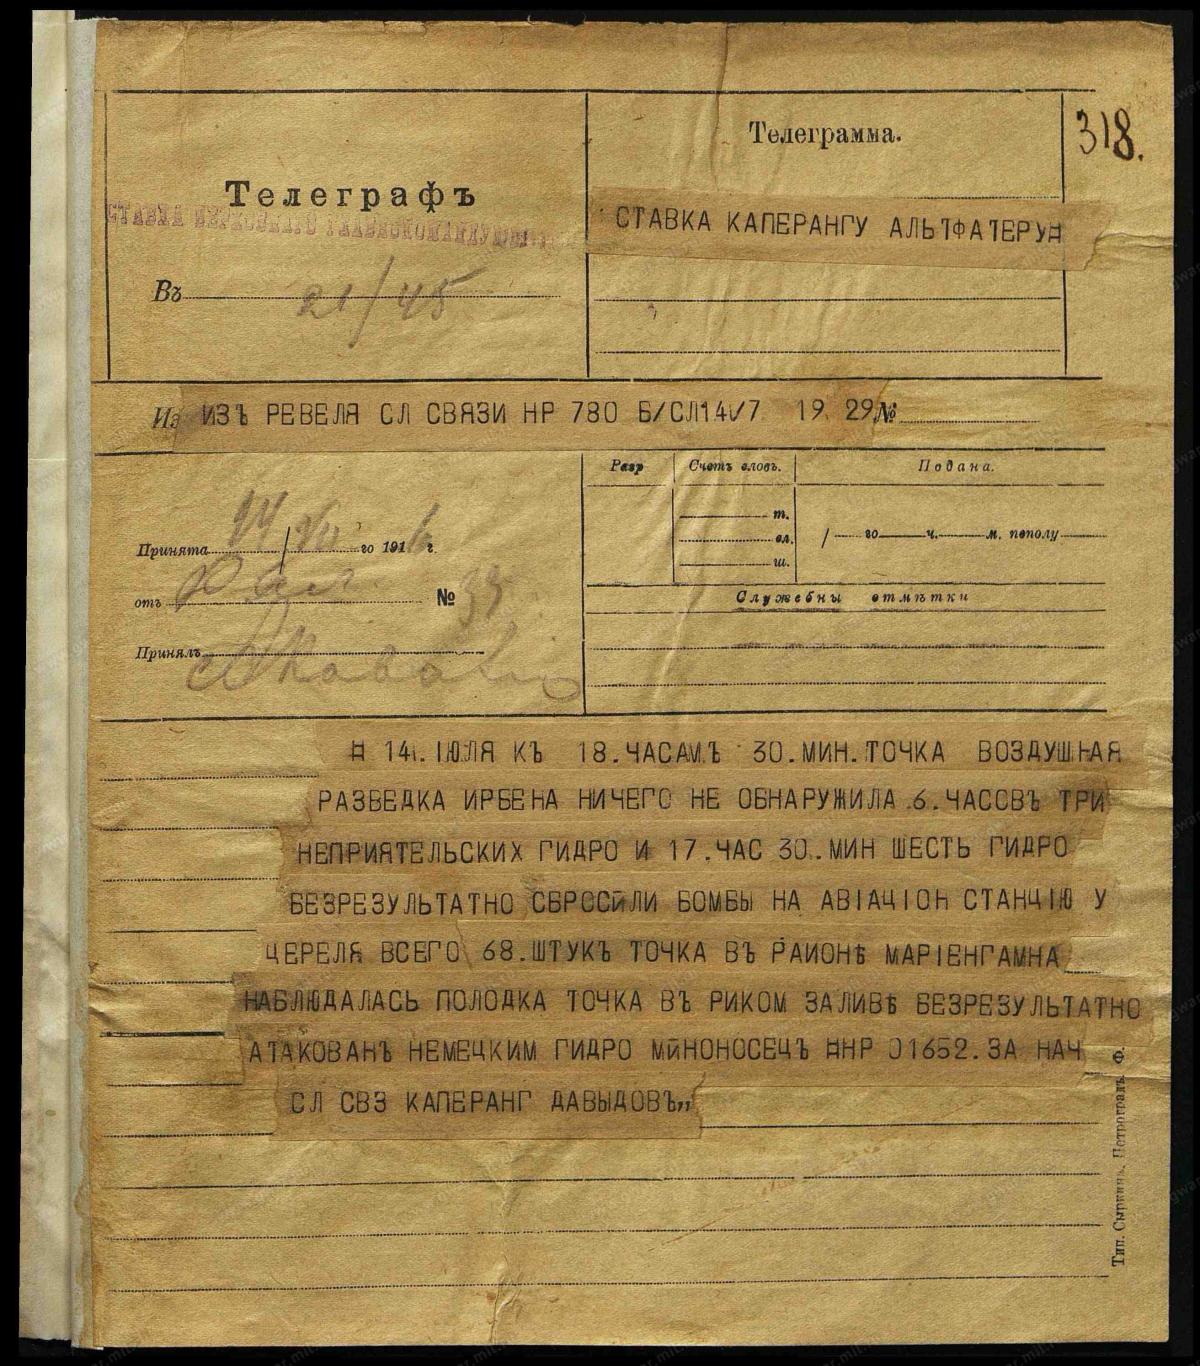 318.
Телеграмма.
Телеграфъ
СТАВКА КАПЕРАНГУ АЛЬТФАТЕРУ¤
Въ 21/45
Из ИЗЪ РЕВЕЛЯ СЛ СВЯЗИ НР 780 Б/СЛ14/7 19 29 №
Разр Счетъ словъ. Подана.
т.
сл.
ш.
/ го ч. м. пополу
Принята 14/VII го 1916 г.
отъ №
Служебны отмѣтки
Принялъ
¤ 14. ІЮЛЯ КЪ 18.ЧАСАМЪ 30.МИН.ТОЧКА ВОЗДУШНАЯ
РАЗВЕДКА ИРБЕНА НИЧЕГО НЕ ОБНАРУЖИЛА 6.ЧАССВЪ ТРИ
НЕПРИЯТЕЛЬСКИХ ГИДРО И 17.ЧАС 30.МИН ШЕСТЬ ГИДРО
БЕЗРЕЗУЛЬТАТНО СБРОСИЛИ БОМБЫ НА АВІАЦІОН СТАНЦІЮ У
ЦЕРЕЛЯ ВСЕГО 68.ШТУКЪ ТОЧКА ВЪ РАИОНѢ МАРІЕНГАМНА
НАБЛЮДАЛАСЬ ПОЛОДКА ТОЧКА ВЪ РИКОМ ЗАЛИВѢ БЕЗРЕЗУЛЬТАТНО
АТАКОВАНЪ НЕМЕЦКИМ ГИДРО МИНОНОСЕЦЪ ¤НР 01652.ЗА НАЧ
СЛ СВЗ КАПЕРАНГ ДАВЫДОВЪ,,
Тип. Сыркинъ. Петроградъ. Ф.